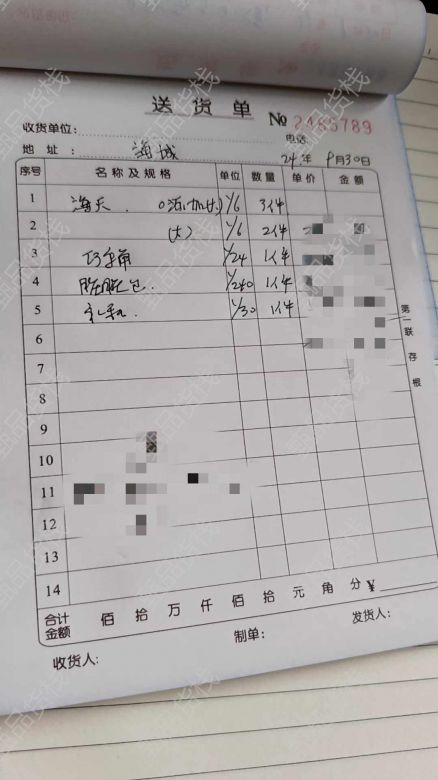 送货单
№ 2465789
收货单位: 电话:
地 址: 海城 24年 9月30日
序号 名称及规格 单位 数量 单价 金额
1 海天 1/6 3件
2 (大) 1/6 2件
3 1/24 1件
4 1/240 1件
5 1/30 1件
6
7
8
9
10
11
12
13
14
合计金额 佰 拾 万 仟 佰 拾 元 角 分 ¥
收货人: 制单: 发货人:
第一联 存根